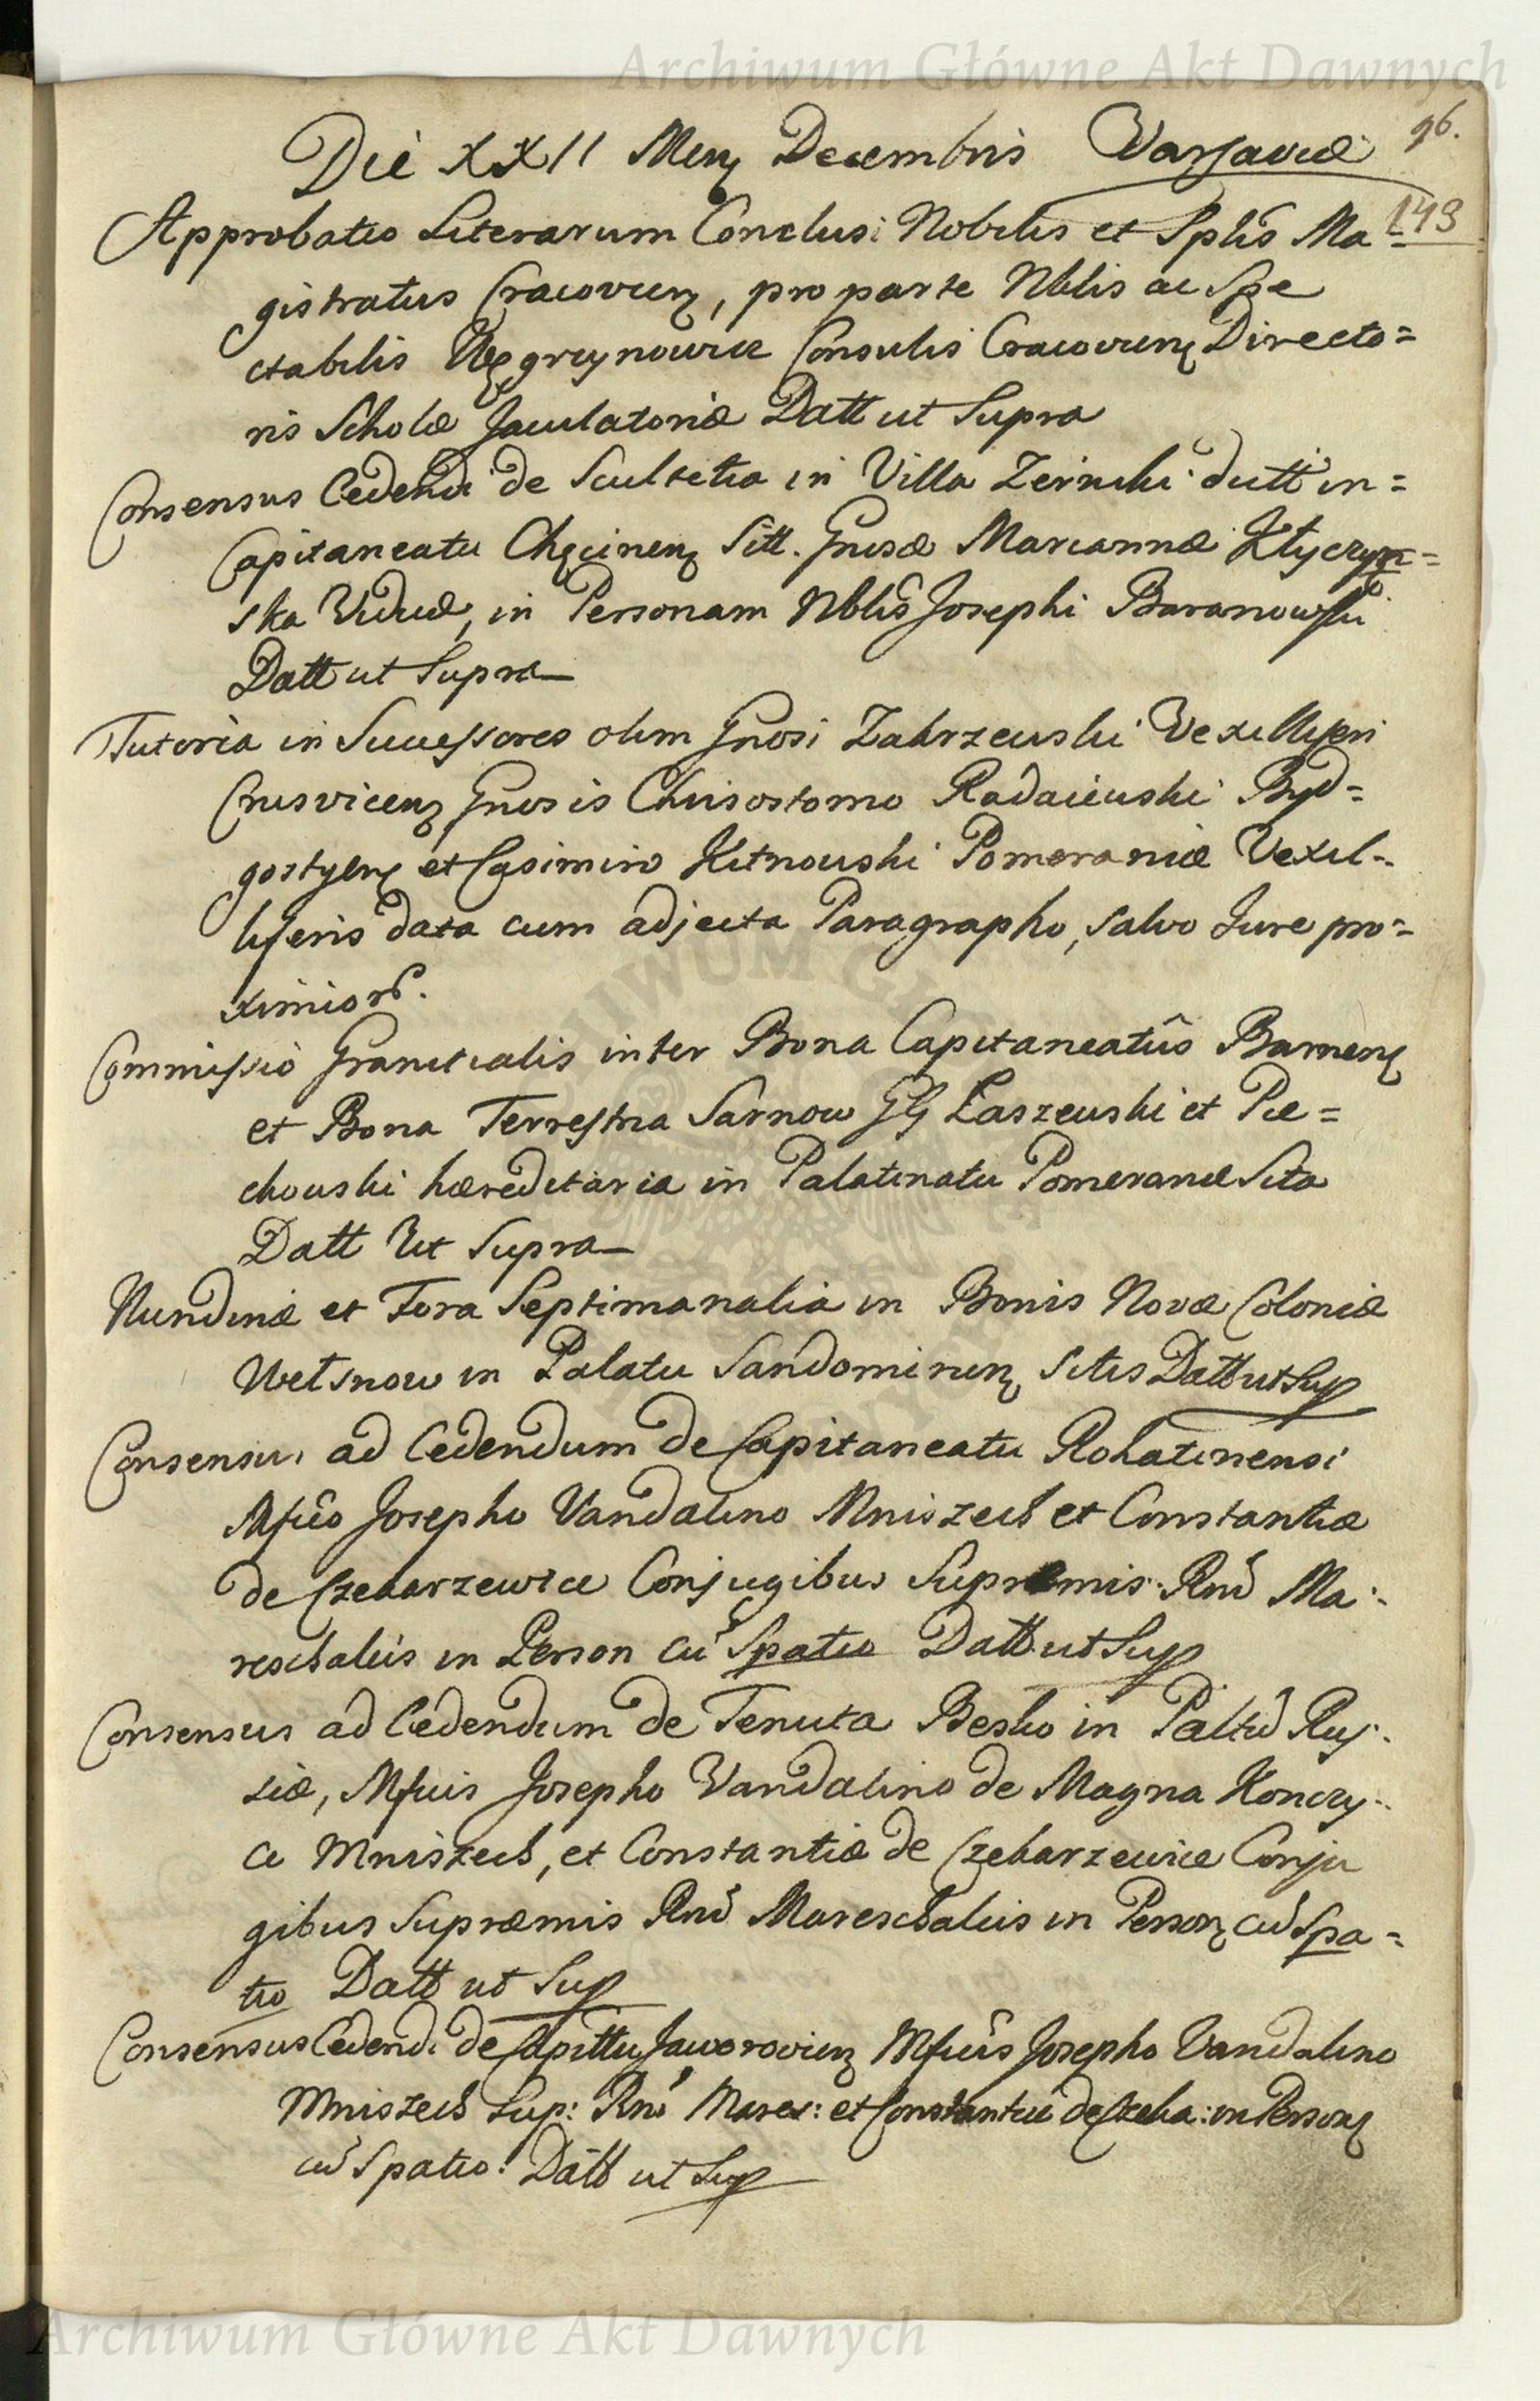 Archiwum Główne Akt Dawnych
96.
Die XXII Menz Decembris Varsaviæ
143
Approbatio Literarum Conclusi Nobilis et Splis Ma-
gistratus Cracovienz, pro parte Nblis ac Spe
ctabilis Węgrzynowicz Consulis Cracovienz Directo=
ris Scholæ Jaculatoriæ Datt ut Supra
Consensus Cedendi de Scultetia in Villa Zernihi dutt in=
Capitaneatu Chęcinenz Sitt. Gnosæ Mariannæ Kłyczyn=
ska Viduæ, in Personam Nblis Josephi Baranowski
Datt ut Supra
Tutoria in Successores olim Gnosi Zakrzewski Vexilliferi
Crusvicenz Gnosis Chrisostomo Radaiewski Byd=
gostyenz et Casimiro Kitnowski Pomeraniæ Vexil-
liferis data cum adjecta Paragrapho, salvo Jure pro-
ximiorb.
Commissio Granicialis inter Bona Capitaneatûs Barnenz
et Bona Terrestria Sarnow GG Łaszewski et Pie=
chowski hæreditaria in Palatinatu Pomeraniæ Sita
Datt Ut Supra
Nundinæ et Fora Septimanalia in Bonis Novæ Coloniæ
Wetsnow in Palatu Sandomirienz Sitis Datt ut Sup
Consensus ad Cedendum de Capitaneatu Rohatinensi
Mfico Josepho Vandalino Mniszech et Constantiæ
de Czekarzewice Conjugibus Supremis Rni Ma-
reschalis in Person cũ Spatio Datt ut Sup
Consensus ad Cedendum de Tenuta Besko in Paltũ Rus-
siæ, Mficis Josepho Vandalino de Magna Konczy-
ce Mniszech, et Constantiæ de Czekarzewice Conju
gibus Supræmis Rni Mareschalis in Personz cũ Spa=
tio Datt ut Sup
Consensus Cedendi de Capittu Jaworovienz Mficis Josepho Vandalino
Mniszech Sup: Rni Mares: et Constantiæ de Czeka: in Personz
cũ Spatio: Datt ut Sup
Archiwum Główne Akt Dawnych